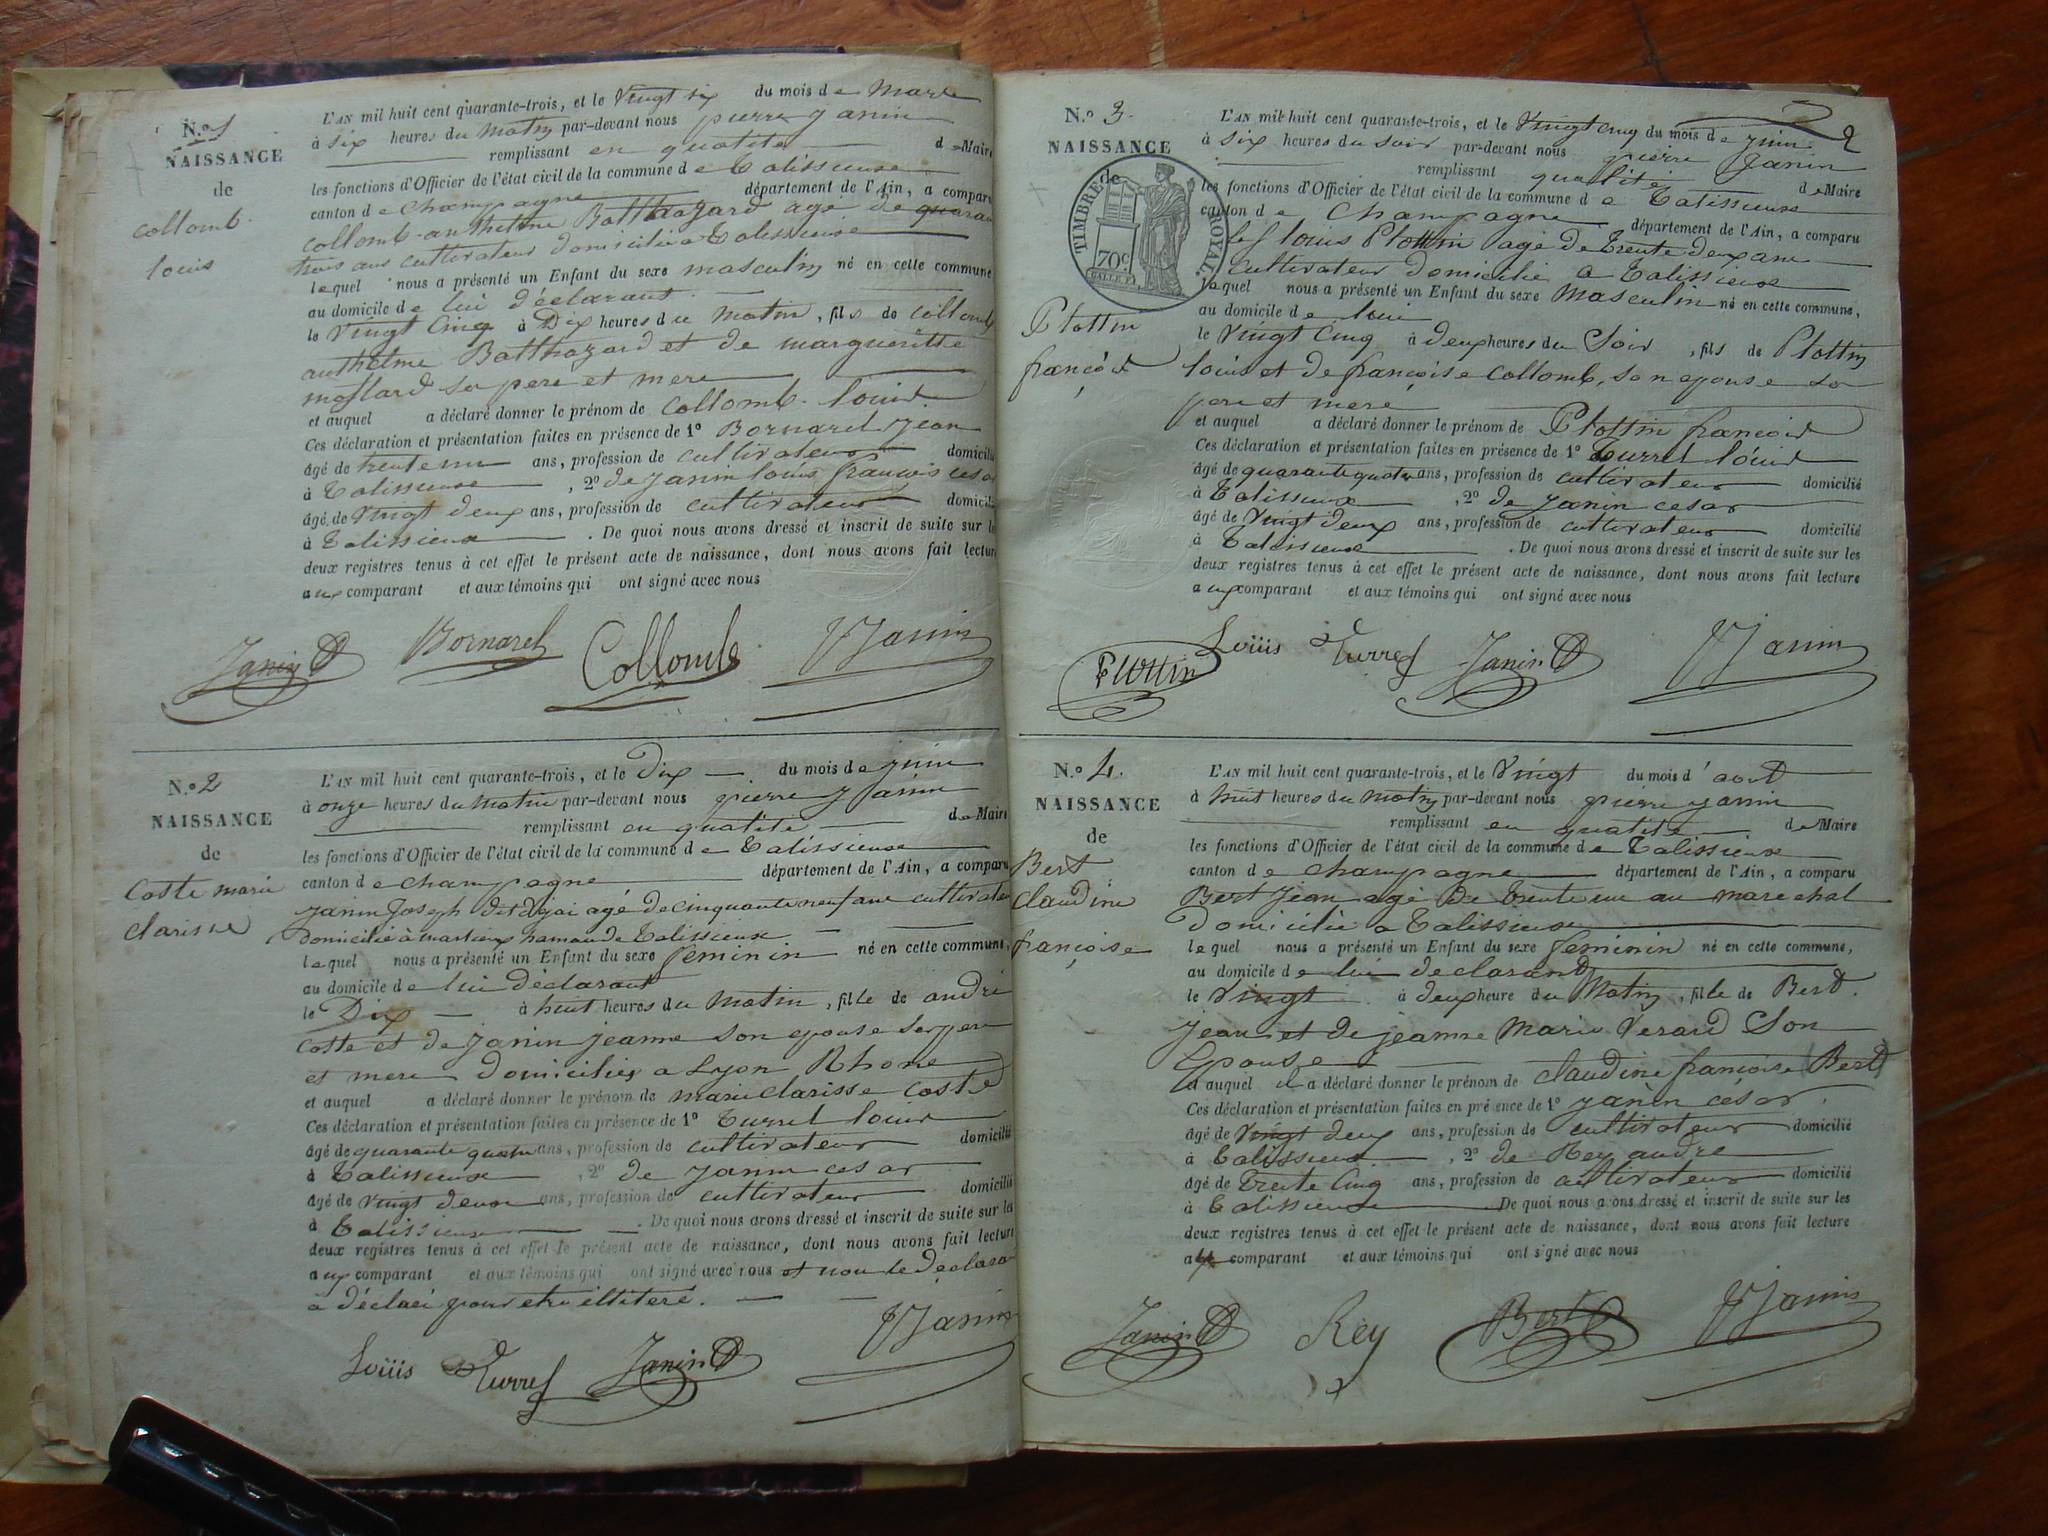 N.o 1
NAISSANCE
de
collomb
louis
L'AN mil huit cent quarante-trois, et le vingt six du mois de mars
à six heures du matin par-devant nous pierre janin
remplissant en qualité de Maire
les fonctions d'Officier de l'état civil de la commune de talissieux
canton de champagne département de l'Ain, a comparu
collomb anthelme Balthazard agé de quaran
trois ans cultivateur domicilié a talissieux
lequel nous a présenté un Enfant du sexe masculin né en cette commune
au domicile de lui déclarant
le vingt cinq à Dix heures du matin, fils de collomb
anthelme Balthazard et de margueritte
mollard ser pere et mere
et auquel a déclaré donner le prénom de collomb louis
Ces déclaration et présentation faites en présence de 1º Bornarel jean
âgé de trente un ans, profession de cultivateur domicilié
à talissieux, 2º de janin louis francois cesar
âgé de vingt deux ans, profession de cultivateur domicilié
à talissieux. De quoi nous avons dressé et inscrit de suite sur les
deux registres tenus à cet effet le présent acte de naissance, dont nous avons fait lecture
aux comparant et aux témoins qui ont signé avec nous
Janin Bornarel Collomb Janin
N.o 2
NAISSANCE
de
coste marie
clarisse
L'AN mil huit cent quarante-trois, et le Dix du mois de juin
à onze heures du matin par-devant nous pierre janin
remplissant en qualité de Maire
les fonctions d'Officier de l'état civil de la commune de talissieux
canton de champagne département de l'Ain, a comparu
janin Joseph dit agé de cinquante neuf ans cultivate
Domicilié à hamau de talissieux
lequel nous a présenté un Enfant du sexe feminin né en cette commune,
au domicile de lui déclarant
le Dix à huit heures du matin, fille de andré
coste et de janin jeanne son epouse ser pere
et mere Domiciliés a Lyon Rhone
et auquel a déclaré donner le prénom de marie clarisse coste
Ces déclaration et présentation faites en présence de 1º turrel louis
âgé de quarante quatre ans, profession de cultivateur domicilié
à talissieux, 2º de janin cesar
âgé de vingt deux ans, profession de cultivateur domicilié
à talissieux. De quoi nous avons dressé et inscrit de suite sur les
deux registres tenus à cet effet le présent acte de naissance, dont nous avons fait lecture
aux comparant et aux témoins qui ont signé avec nous et non le déclaran
a déclaré pour etre illiteré.
Loüis Turrel Janin Janin
2
N.o 3.
NAISSANCE
de
TIMBRE ROYAL.
70c
Plottin
françois
L'AN mil huit cent quarante-trois, et le vingt cinq du mois de juin
à six heures du soir par-devant nous pierre janin
remplissant qualité de Maire
les fonctions d'Officier de l'état civil de la commune de talissieux
canton de champagne département de l'Ain, a comparu
louis Plottin agé de trente deux ans
cultivateur domicilié a talissieux
lequel nous a présenté un Enfant du sexe masculin né en cette commune,
au domicile de
le vingt cinq à deux heures du Soir, fils de Plottin
louis et de françoise collomb, son epouse
pere et mere
et auquel a déclaré donner le prénom de Plottin françois
Ces déclaration et présentation faites en présence de 1º turrel louis
âgé de quarante quatre ans, profession de cultivateur domicilié
à talissieux, 2º de janin cesar
âgé de vingt deux ans, profession de cultivateur domicilié
à talissieux. De quoi nous avons dressé et inscrit de suite sur les
deux registres tenus à cet effet le présent acte de naissance, dont nous avons fait lecture
aux comparant et aux témoins qui ont signé avec nous
Plottin Loüis Turrel Janin Janin
N.o 4.
NAISSANCE
de
Bert
claudine
françoise
L'AN mil huit cent quarante-trois, et le vingt du mois d'aout
à huit heures du matin par-devant nous pierre janin
remplissant en qualité de Maire
les fonctions d'Officier de l'état civil de la commune de talissieux
canton de champagne département de l'Ain, a comparu
Bert Jean agé de trente un an marechal
Domicilié a talissieux
lequel nous a présenté un Enfant du sexe feminin né en cette commune,
au domicile de lui declarant
le vingt à deux heure du Matin, fille de Bert
jean et de jeanne Marie Verard Son
Epouse
et auquel il a déclaré donner le prénom de claudine françoise (Bert)
Ces déclaration et présentation faites en présence de 1º janin césar
âgé de vingt deux ans, profession de cultivateur domicilié
à talissieux, 2º de Rey andre
âgé de trente cinq ans, profession de cultivateur domicilié
à talissieux De quoi nous avons dressé et inscrit de suite sur les
deux registres tenus à cet effet le présent acte de naissance, dont nous avons fait lecture
au comparant et aux témoins qui ont signé avec nous
Janin Rey Bert Janin